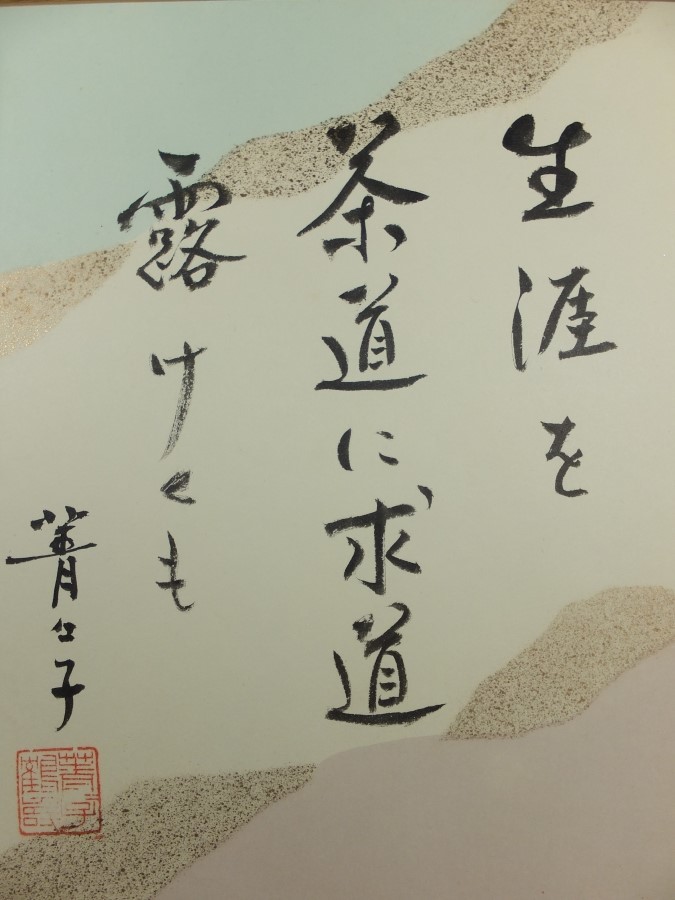 生涯を
茶道に求道
露けくも
菁々子